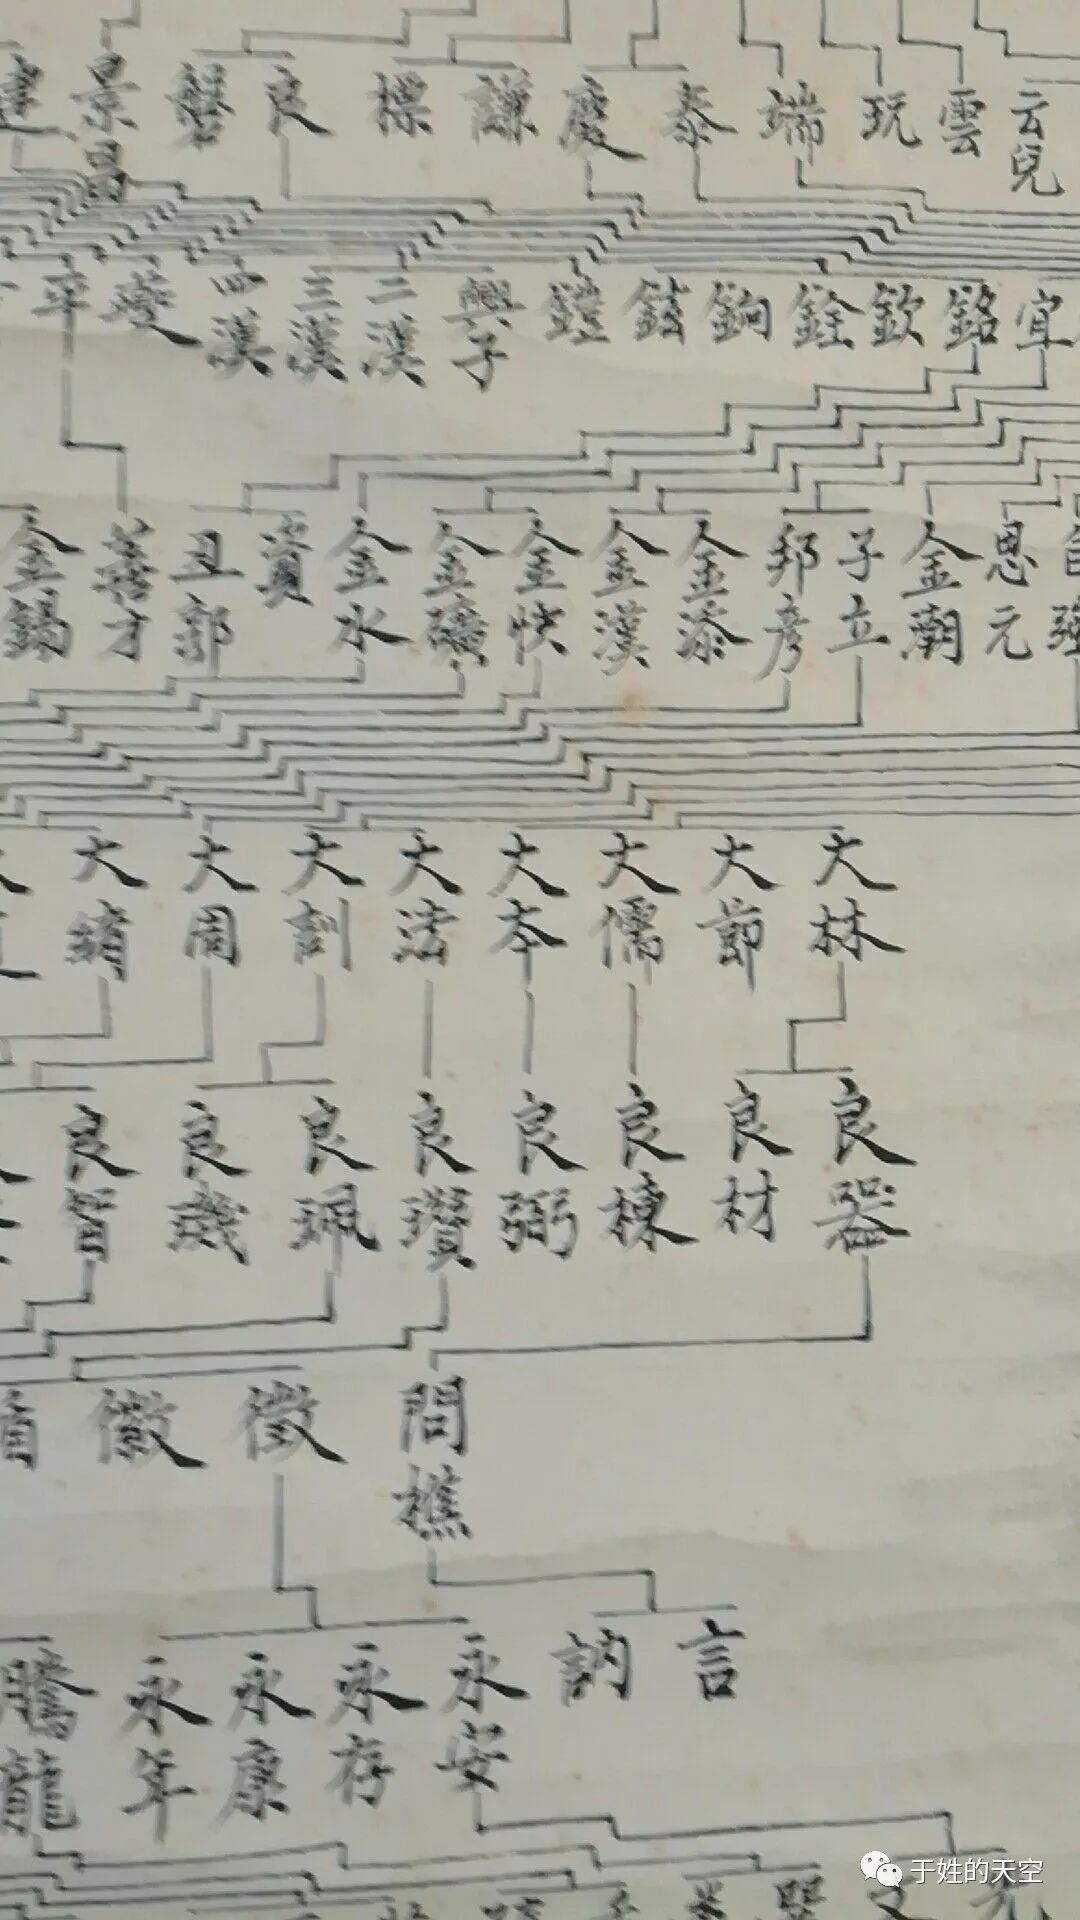 云兒 雲 玩 端 泰 慶 謙 標 良 磐 景昌 建
宜 銘 欽 銓 銁 鎡 鎧 興子 二漢 三漢 四漢 變 卒
恩元 金廟 子立 邦彦 金添 金漢 金快 金礦 金水 資 丑郭 善才 金錫
大林 大節 大儒 大本 大法 大訓 大周 大緒
良器 良材 良棟 良弼 良瓚 良珮 良璣 良智
問樵 徵 徽
言 訥 永安 永存 永康 永年 騰龍
于姓的天空